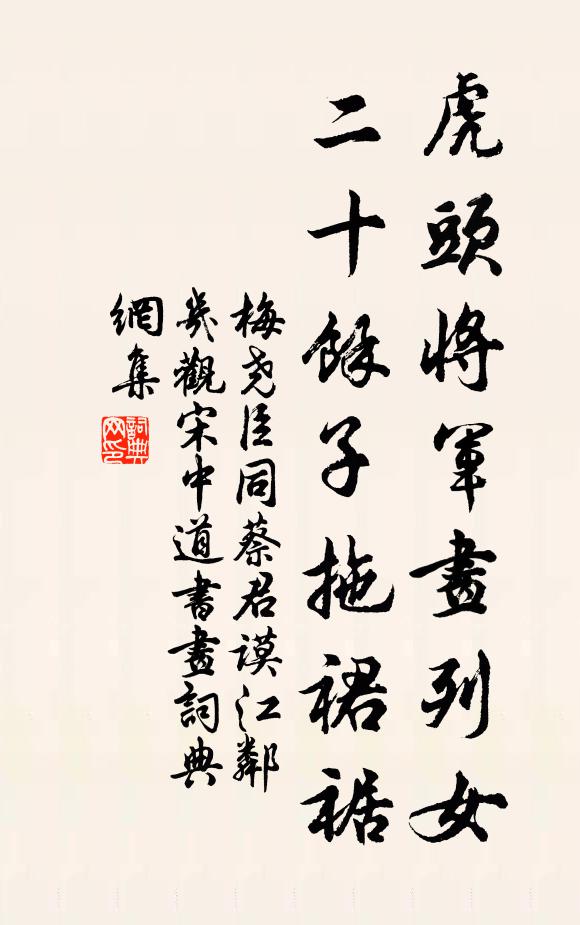 虎頭將軍畫列女
二十餘子拖裙裾
梅堯臣同蔡君謨江鄰
幾觀宋中道書畫詞典
網集
詞典網印